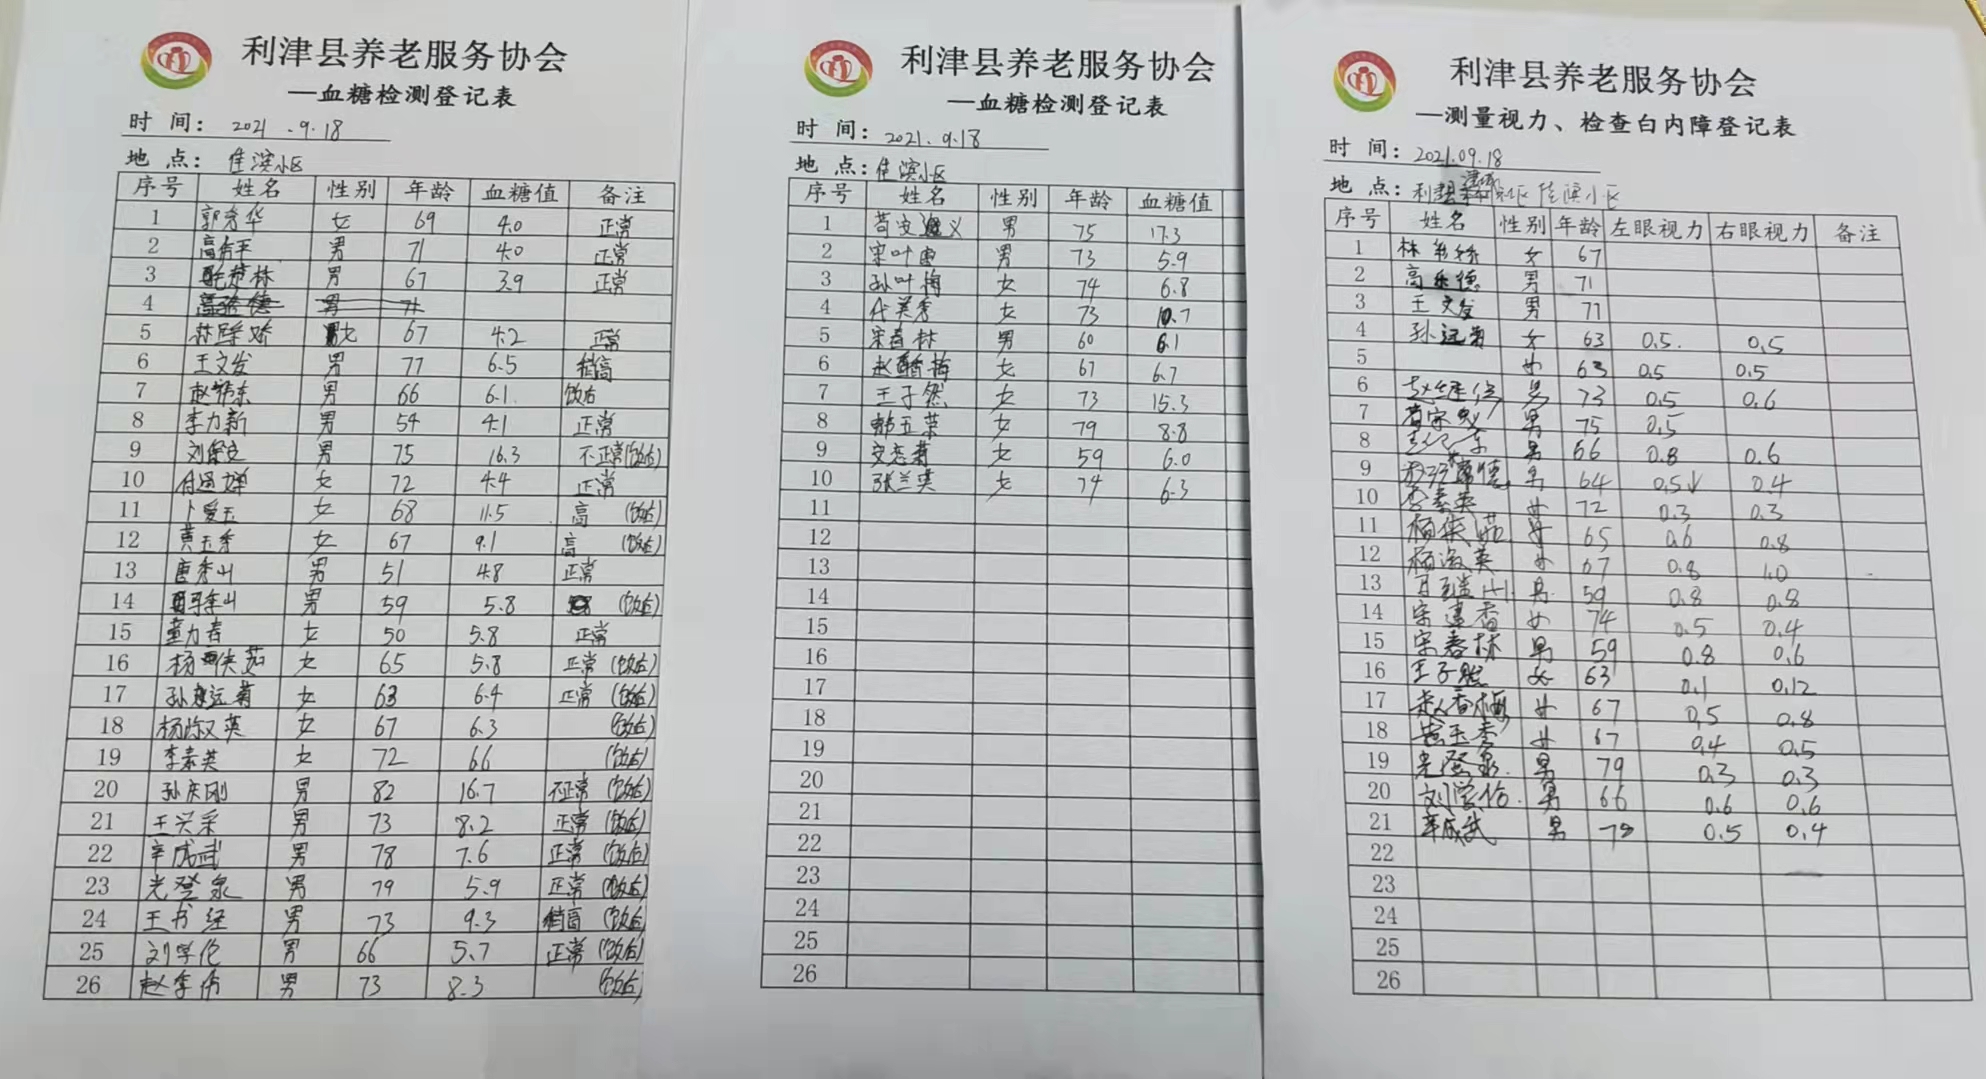 利津县养老服务协会
—血糖检测登记表
时 间: 2021.9.18
地 点: 佳滨小区
序号 姓名 性别 年龄 血糖值 备注
1 郭秀华 女 69 4.0 正常
2 男 71 4.0 正常
3 男 67 3.9 正常
4
5 女 67 4.2 正常
6 王文发 男 77 6.5 稍高
7 赵 东 男 66 6.1 饭后
8 李力新 男 54 4.1 正常
9 刘保 男 75 16.3 不正常(饭后)
10 付 女 72 4.4 正常
11 卜爱玉 女 68 11.5 高 (饭后)
12 黄玉秀 女 67 9.1 高 (饭后)
13 唐秀山 男 51 4.8 正常
14 男 59 5.8 (饭后)
15 董力春 女 50 5.8 正常
16 杨侠茹 女 65 5.8 正常 (饭后)
17 孙运菊 女 63 6.4 正常 (饭后)
18 杨淑英 女 67 6.3 (饭后)
19 李素英 女 72 6.6 (饭后)
20 孙庆刚 男 82 16.7 不正常 (饭后)
21 王兴采 男 73 8.2 正常 (饭后)
22 辛成武 男 78 7.6 正常 (饭后)
23 光登泉 男 79 5.9 正常 (饭后)
24 王书经 男 73 9.3 稍高 (饭后)
25 刘学伦 男 66 5.7 正常 (饭后)
26 赵 男 73 8.3 (饭后)
利津县养老服务协会
—血糖检测登记表
时 间: 2021.9.18
地 点: 佳滨小区
序号 姓名 性别 年龄 血糖值
1 苟安义 男 75 17.3
2 宋叶 男 73 5.9
3 孙叶梅 女 74 6.8
4 代美秀 女 73 10.7
5 宋春林 男 60 6.1
6 赵香梅 女 67 6.7
7 王子然 女 73 15.3
8 韩五荣 女 79 8.8
9 女 59 6.0
10 张兰英 女 74 6.3
11
12
13
14
15
16
17
18
19
20
21
22
23
24
25
26
利津县养老服务协会
—测量视力、检查白内障登记表
时 间: 2021.09.18
地 点: 利津 社区 佳滨小区
序号 姓名 性别 年龄 左眼视力 右眼视力 备注
1 林 女 67
2 高 德 男 71
3 王文发 男 77
4 孙运菊 女 63 0.5 0.5
5 女 63 0.5 0.5
6 赵 男 73 0.5 0.6
7 男 75 0.5
8 男 66 0.8 0.6
9 男 64 0.5 0.4
10 李素英 女 72 0.3 0.3
11 杨侠茹 女 65 0.6 0.8
12 杨淑英 女 67 0.8 1.0
13 男 59 0.8 0.8
14 宋 香 女 74 0.5 0.4
15 宋春林 男 59 0.8 0.6
16 王子然 女 63 0.1 0.12
17 赵香梅 女 67 0.5 0.8
18 黄玉秀 女 67 0.4 0.5
19 光登泉 男 79 0.3 0.3
20 刘学伦 男 66 0.6 0.6
21 辛成武 男 78 0.5 0.4
22
23
24
25
26